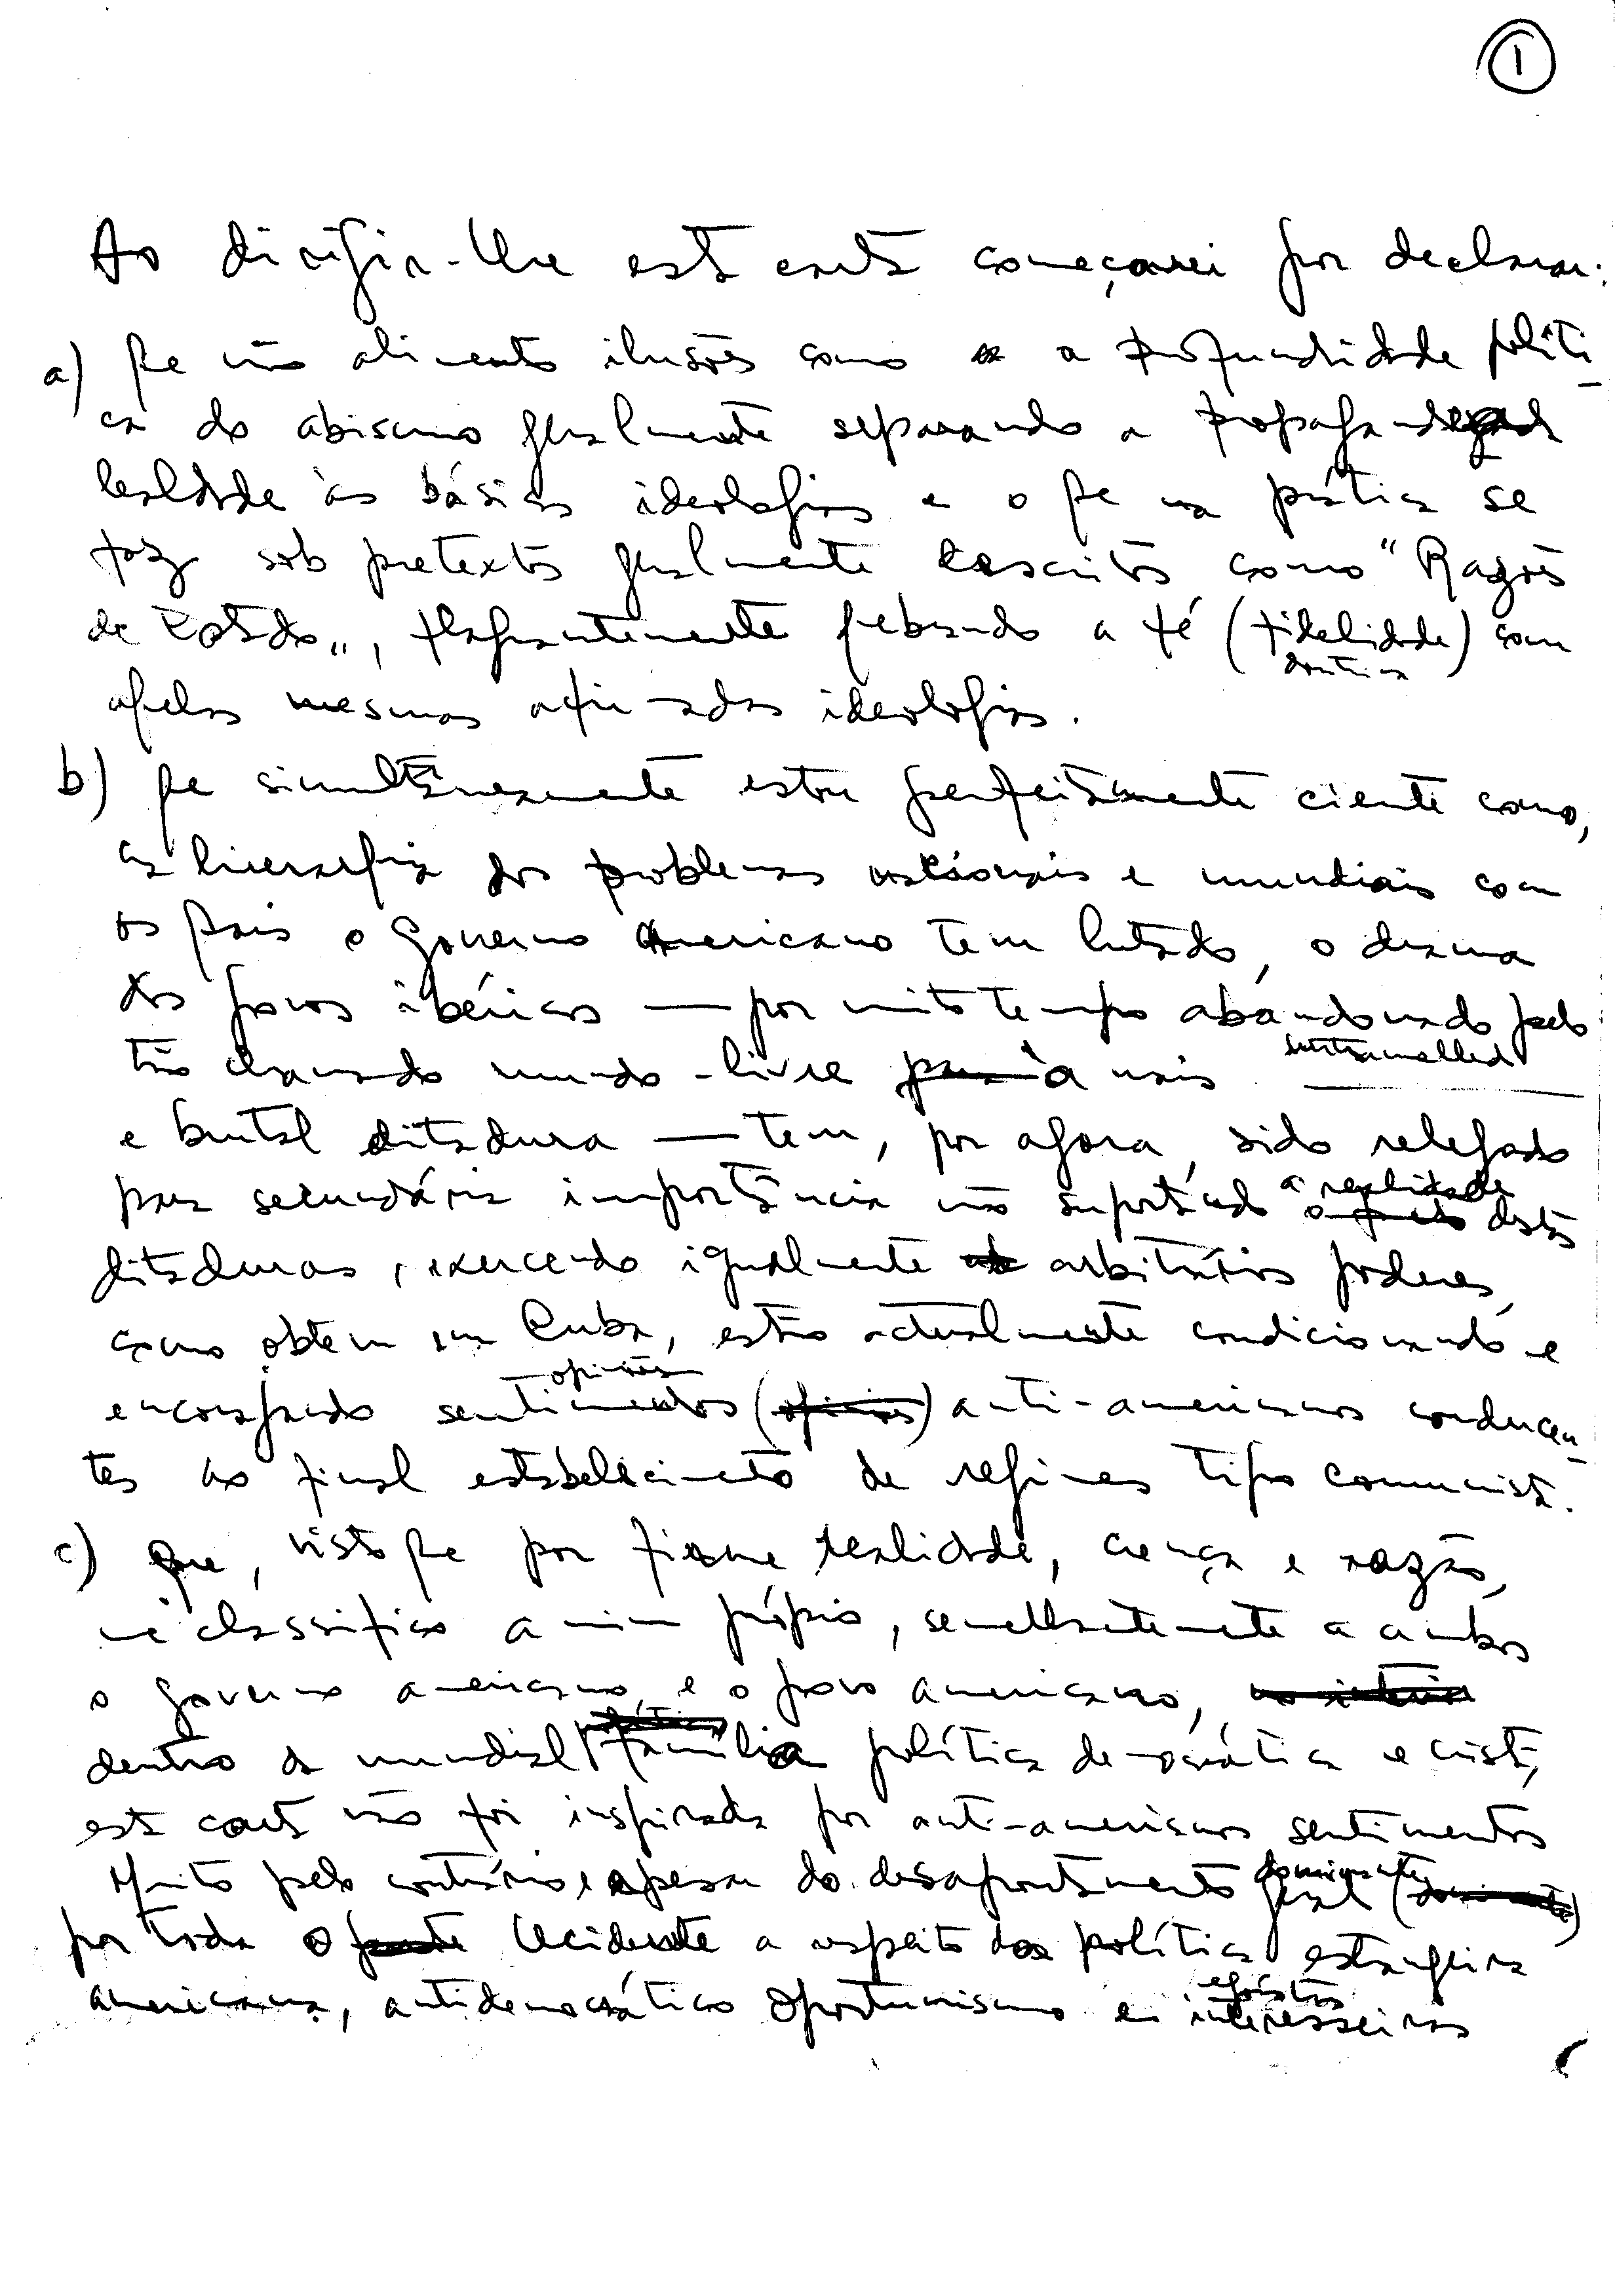 1
Ao dirigir-lhe esta carta começarei por declarar:
a) que não alimento ilusões como a profundidade políti-
ca do abismo geralmente separando a propagandeada
lealdade às básicas ideologias e o que na prática se
faz sob pretextos geralmente descritos como "Razões
de Estado", flagrantemente quebrando a fé (fidelidade) com
doutrina
aquelas mesmas afirmadas ideologias.
b) que simultâneamente estou perfeitamente ciente como,
na hierarquia dos problemas nacionais e mundiais com
os quais o governo Americano tem lutado, o drama
dos povos ibéricos — por muito tempo abandonado pelo
tão chamado mundo-livre à mais untramelled
e brutal ditadura — tem, por agora, sido relegado
para secundária importância não suportando a realidade destas
ditaduras, exercendo igualmente arbitrários poderes,
como obtem em Cuba, estão actualmente condicionando e
opiniões
encorajando sentimentos (opiniões) anti-americanos conducen-
tes ao final estabelecimento de regimes tipo comunista.
c) Que, visto que por firme lealdade, crença e razão,
me classifico a mim próprio, semelhantemente a ambos
o governo americano, e o povo americano,
dentro da mundial família política democrática e cristã,
esta carta não foi inspirada por anti-americanos sentimentos
Muito pelo contrário, e apesar do desapontamento geral dominante
por todo o Ocidente a respeito da política estrangeira
americana, antidemocrático oportunismo e interesseiros
egoístas